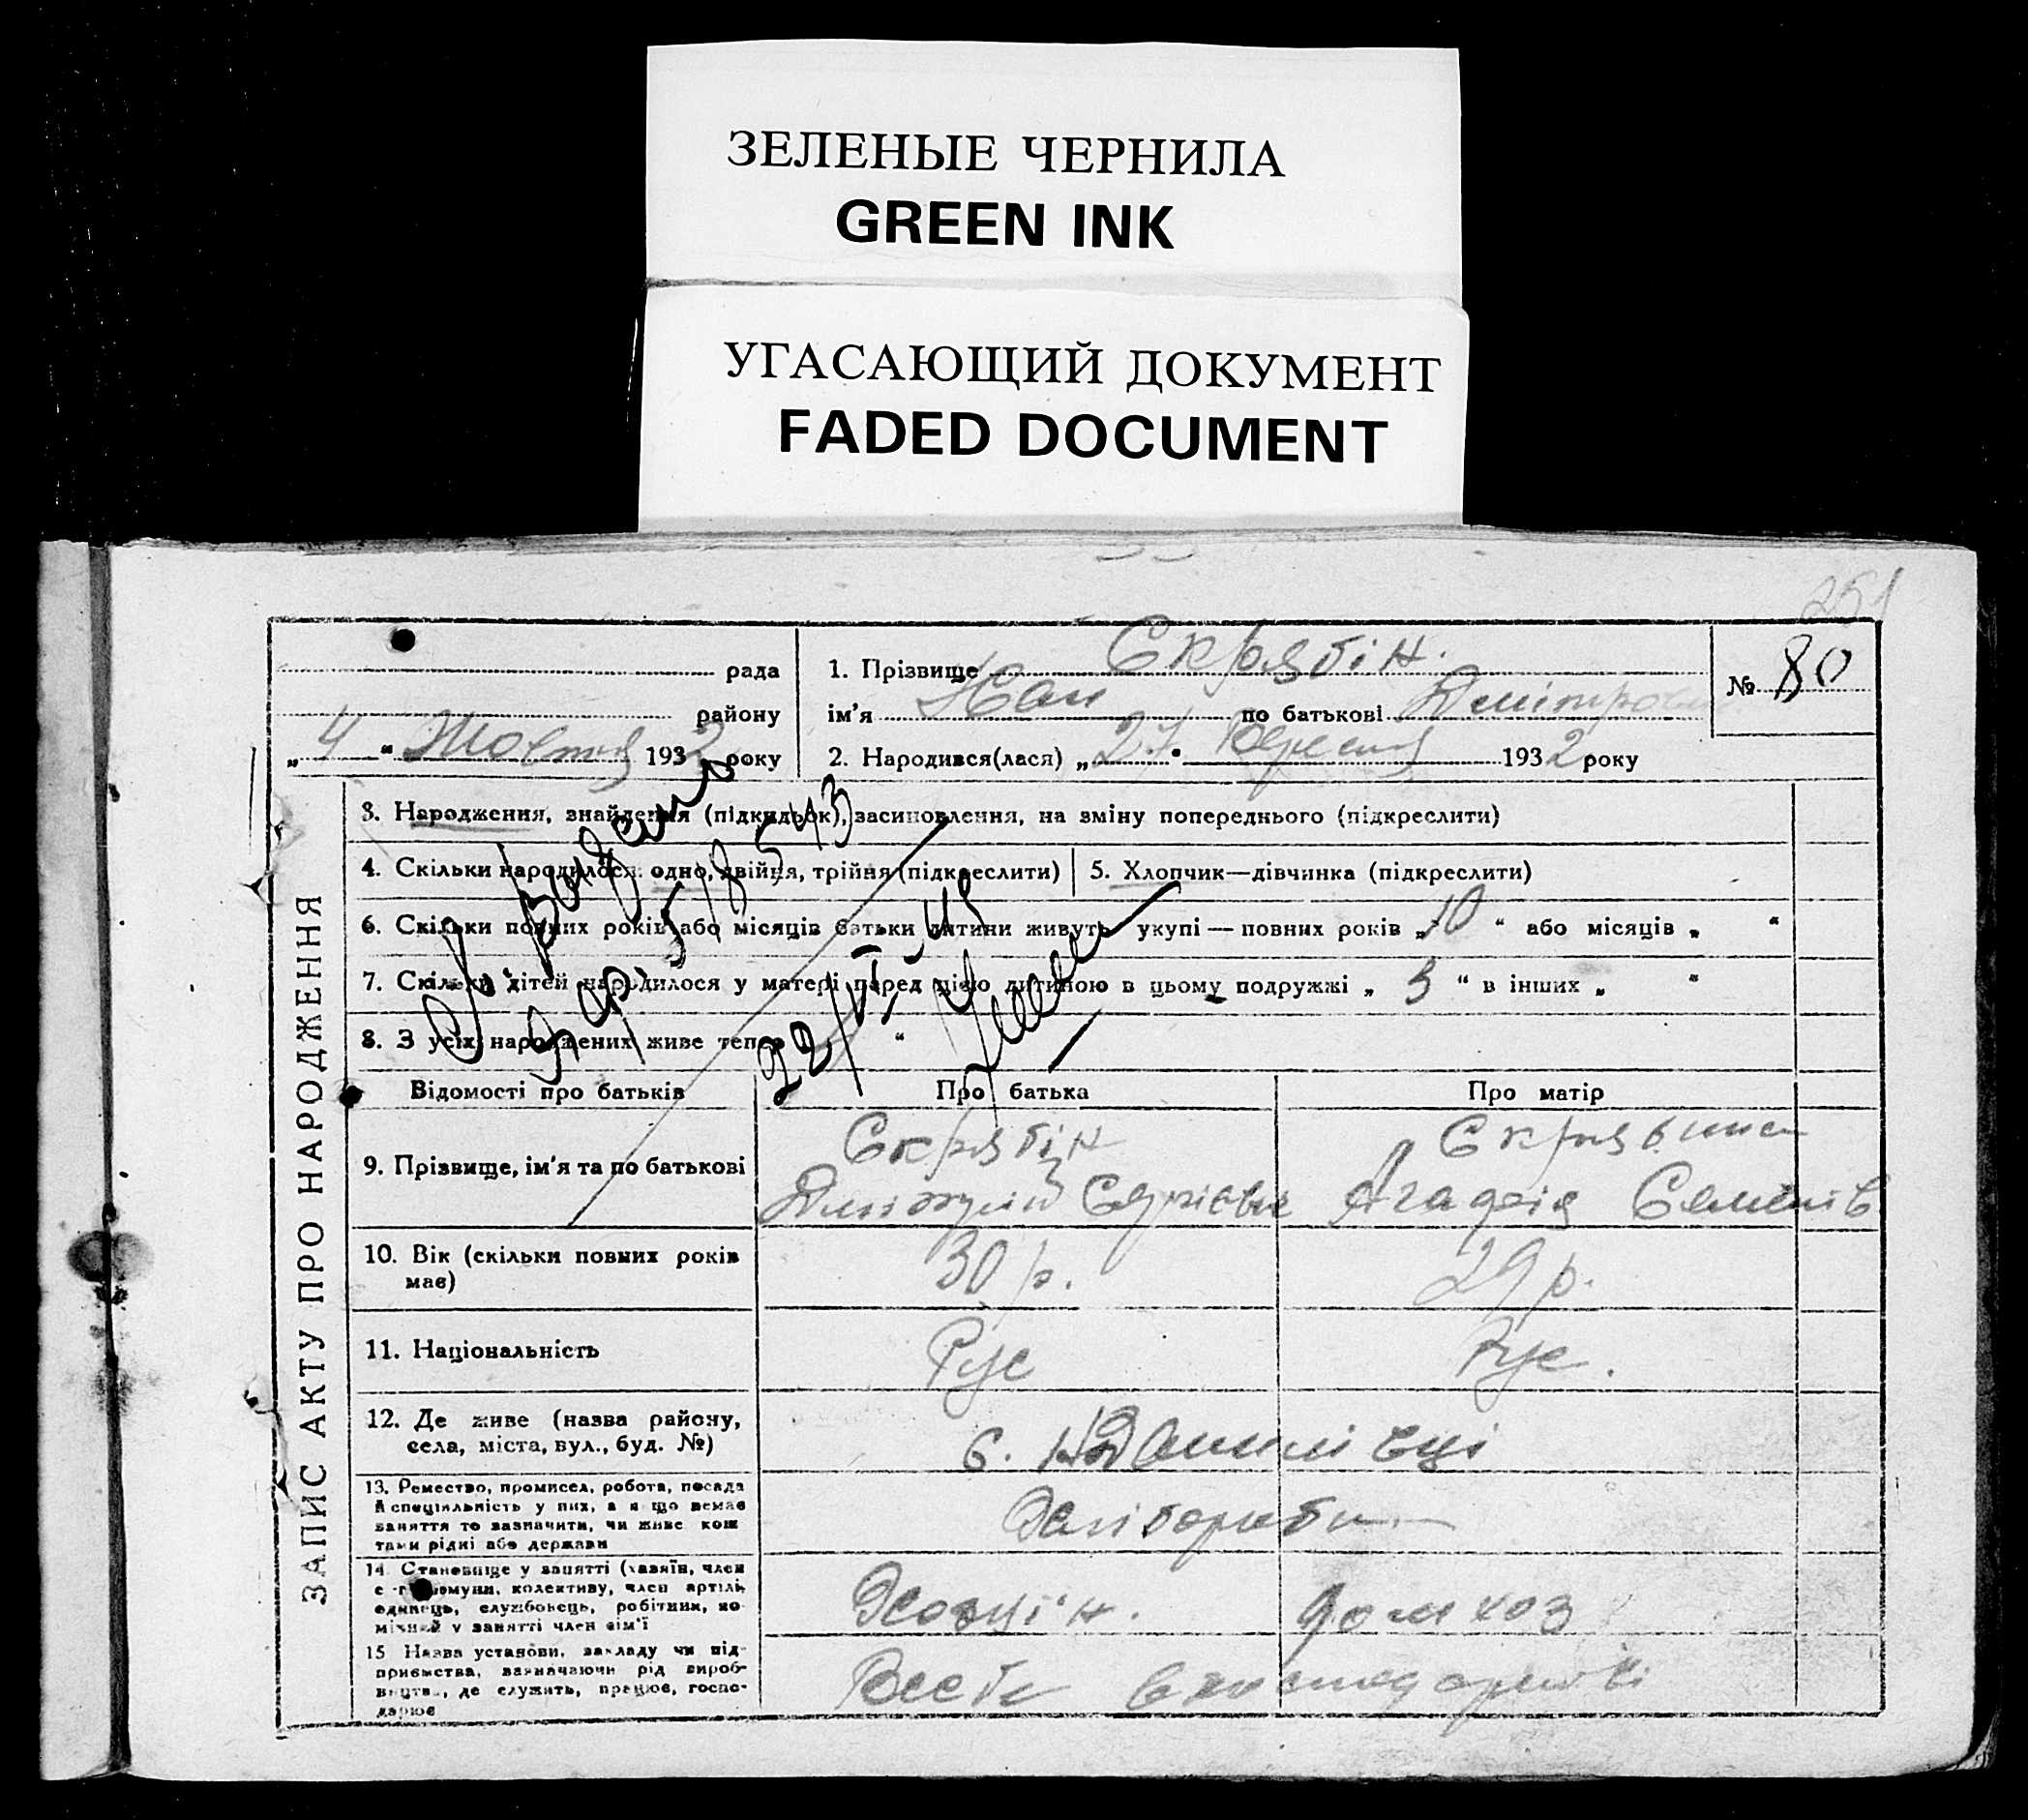 ЗЕЛЕНЫЕ ЧЕРНИЛА
GREEN INK
УГАСАЮЩИЙ ДОКУМЕНТ
FADED DOCUMENT
251
рада
району
„ 4 “ Жовтня 1932 року
1. Прізвище Скрябін.
ім'я Іван по батькові Дмітрович
№ 80
2. Народився(лася) „ 27 “ Вересня 1932 року
ЗАПИС АКТУ ПРО НАРОДЖЕННЯ
3. Народження, знайдення (підкидьок), засиновлення, на зміну попереднього (підкреслити)
4. Скільки народилося: одно, двійня, трійня (підкреслити)
5. Хлопчик—дівчинка (підкреслити)
6. Скільки повних років або місяців батьки дитини живуть укупі — повних років „ 10 “ або місяців „ “
7. Скільки дітей народилося у матері перед цією дитиною в цьому подружжі „ 3 “ в інших „ “
8. З усіх народжених живе тепер “
22/VI-48
Відомості про батьків
Про батька
Про матір
9. Прізвище, ім'я та по батькові
Скрябін
Скрябина
10. Вік (скільки повних років
має)
30 р.
29 р.
11. Національність
Рус
Рус.
12. Де живе (назва району,
села, міста, вул., буд. №)
с.
13. Ремество, промисел, робота, посада
й спеціяльність у них, а якщо немає
заняття то зазначити, чи живе кош
тами рідні або держави
14. Становище у занятті (хазяїн, член
комуни, колективу, член артілі,
одинець, службовець, робітник, по
мічний у занятті член сім'ї
домхоз
15 Назва установи, закладу чи під-
приємства, зазначаючи рід вироб-
ництва, де служить, працює, госпо-
дарює